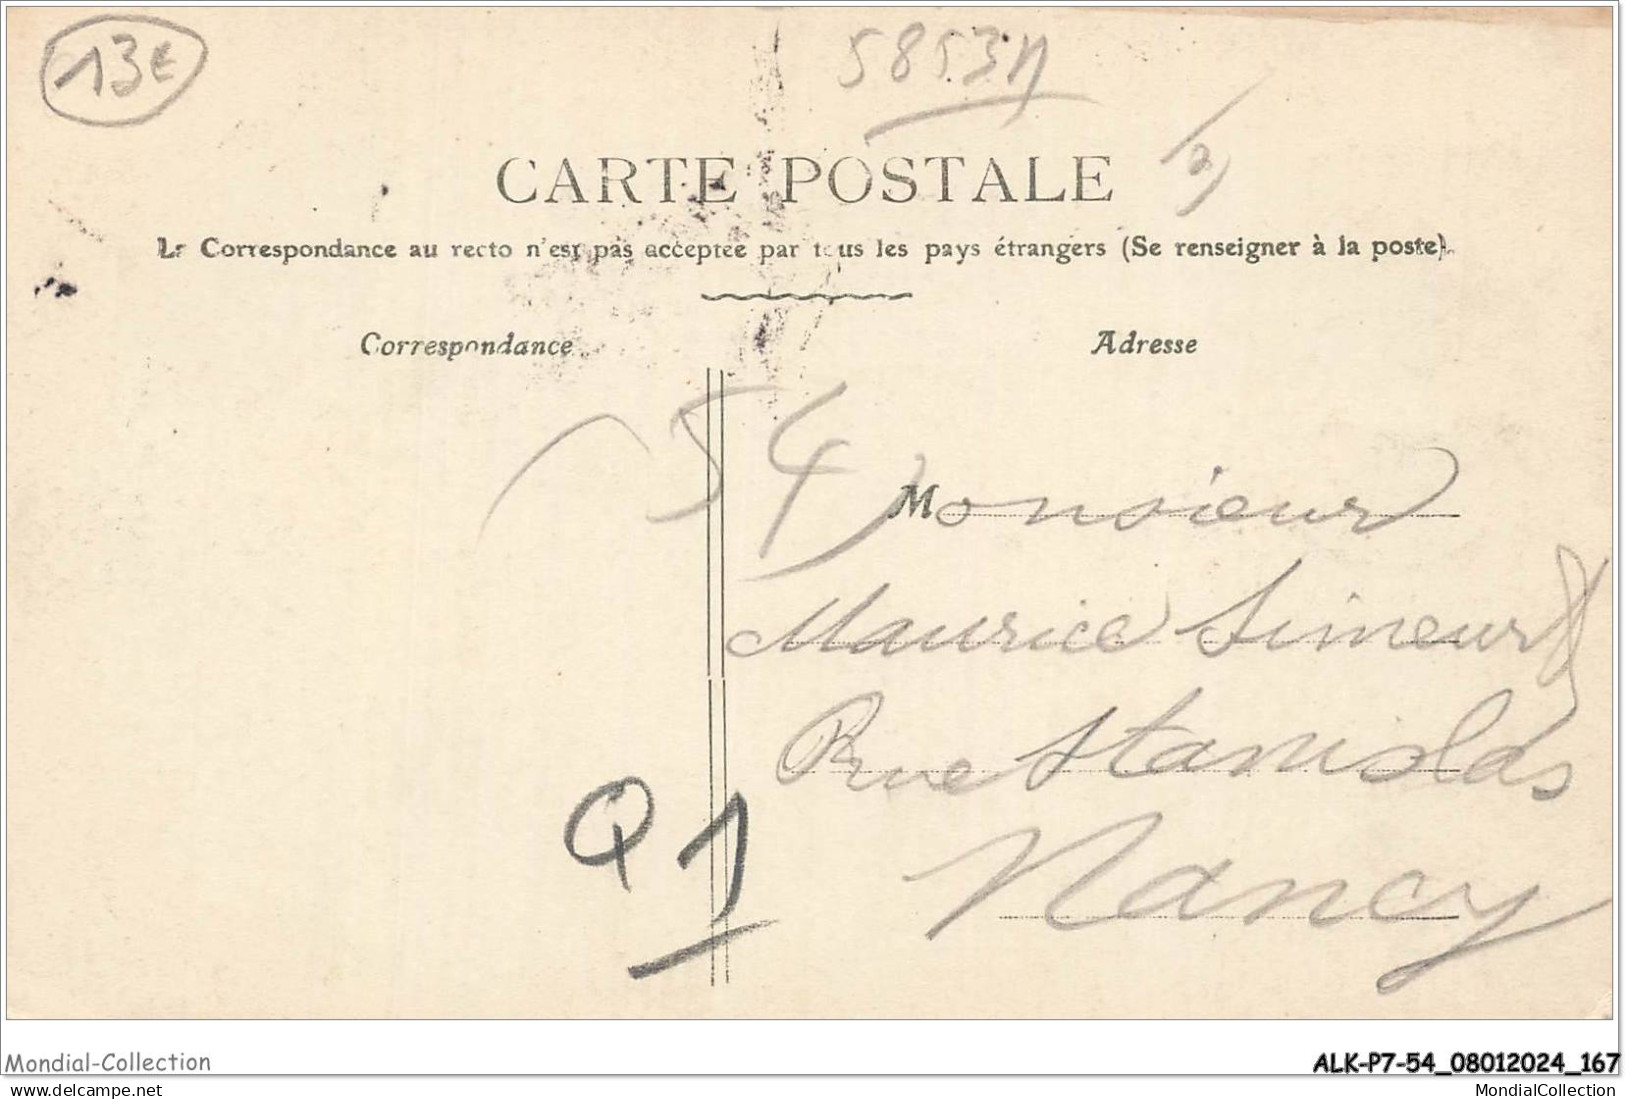 13€
5853n
CARTE POSTALE
La Correspondance au recto n'est pas acceptée par tous les pays étrangers (Se renseigner à la poste).
Correspondance
Adresse
54
Monsieur
Maurice Simeur
Rue Stanislas
Q1
Nancy
Mondial-Collection
ALK-P7-54_08012024_167
www.delcampe.net
MondialCollection